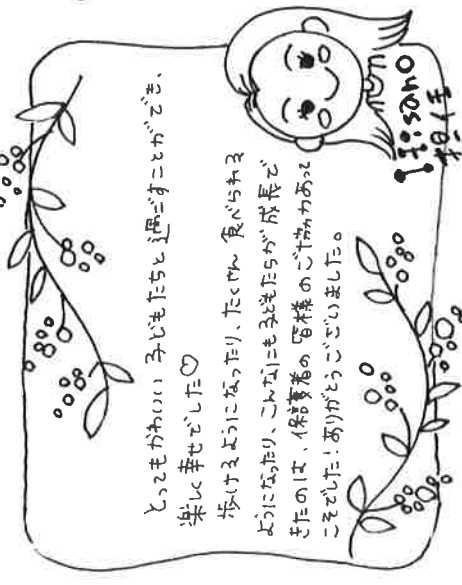 とってもかわいい 子どもたちと過ごすことができ、
楽しく幸せでした♡
歩けるようになったり、たくさん 食べられる
ようになったり、こんなにも子どもたちが成長で
きたのは、保護者の皆様のご協力あって
こそでした！ありがとうございました。